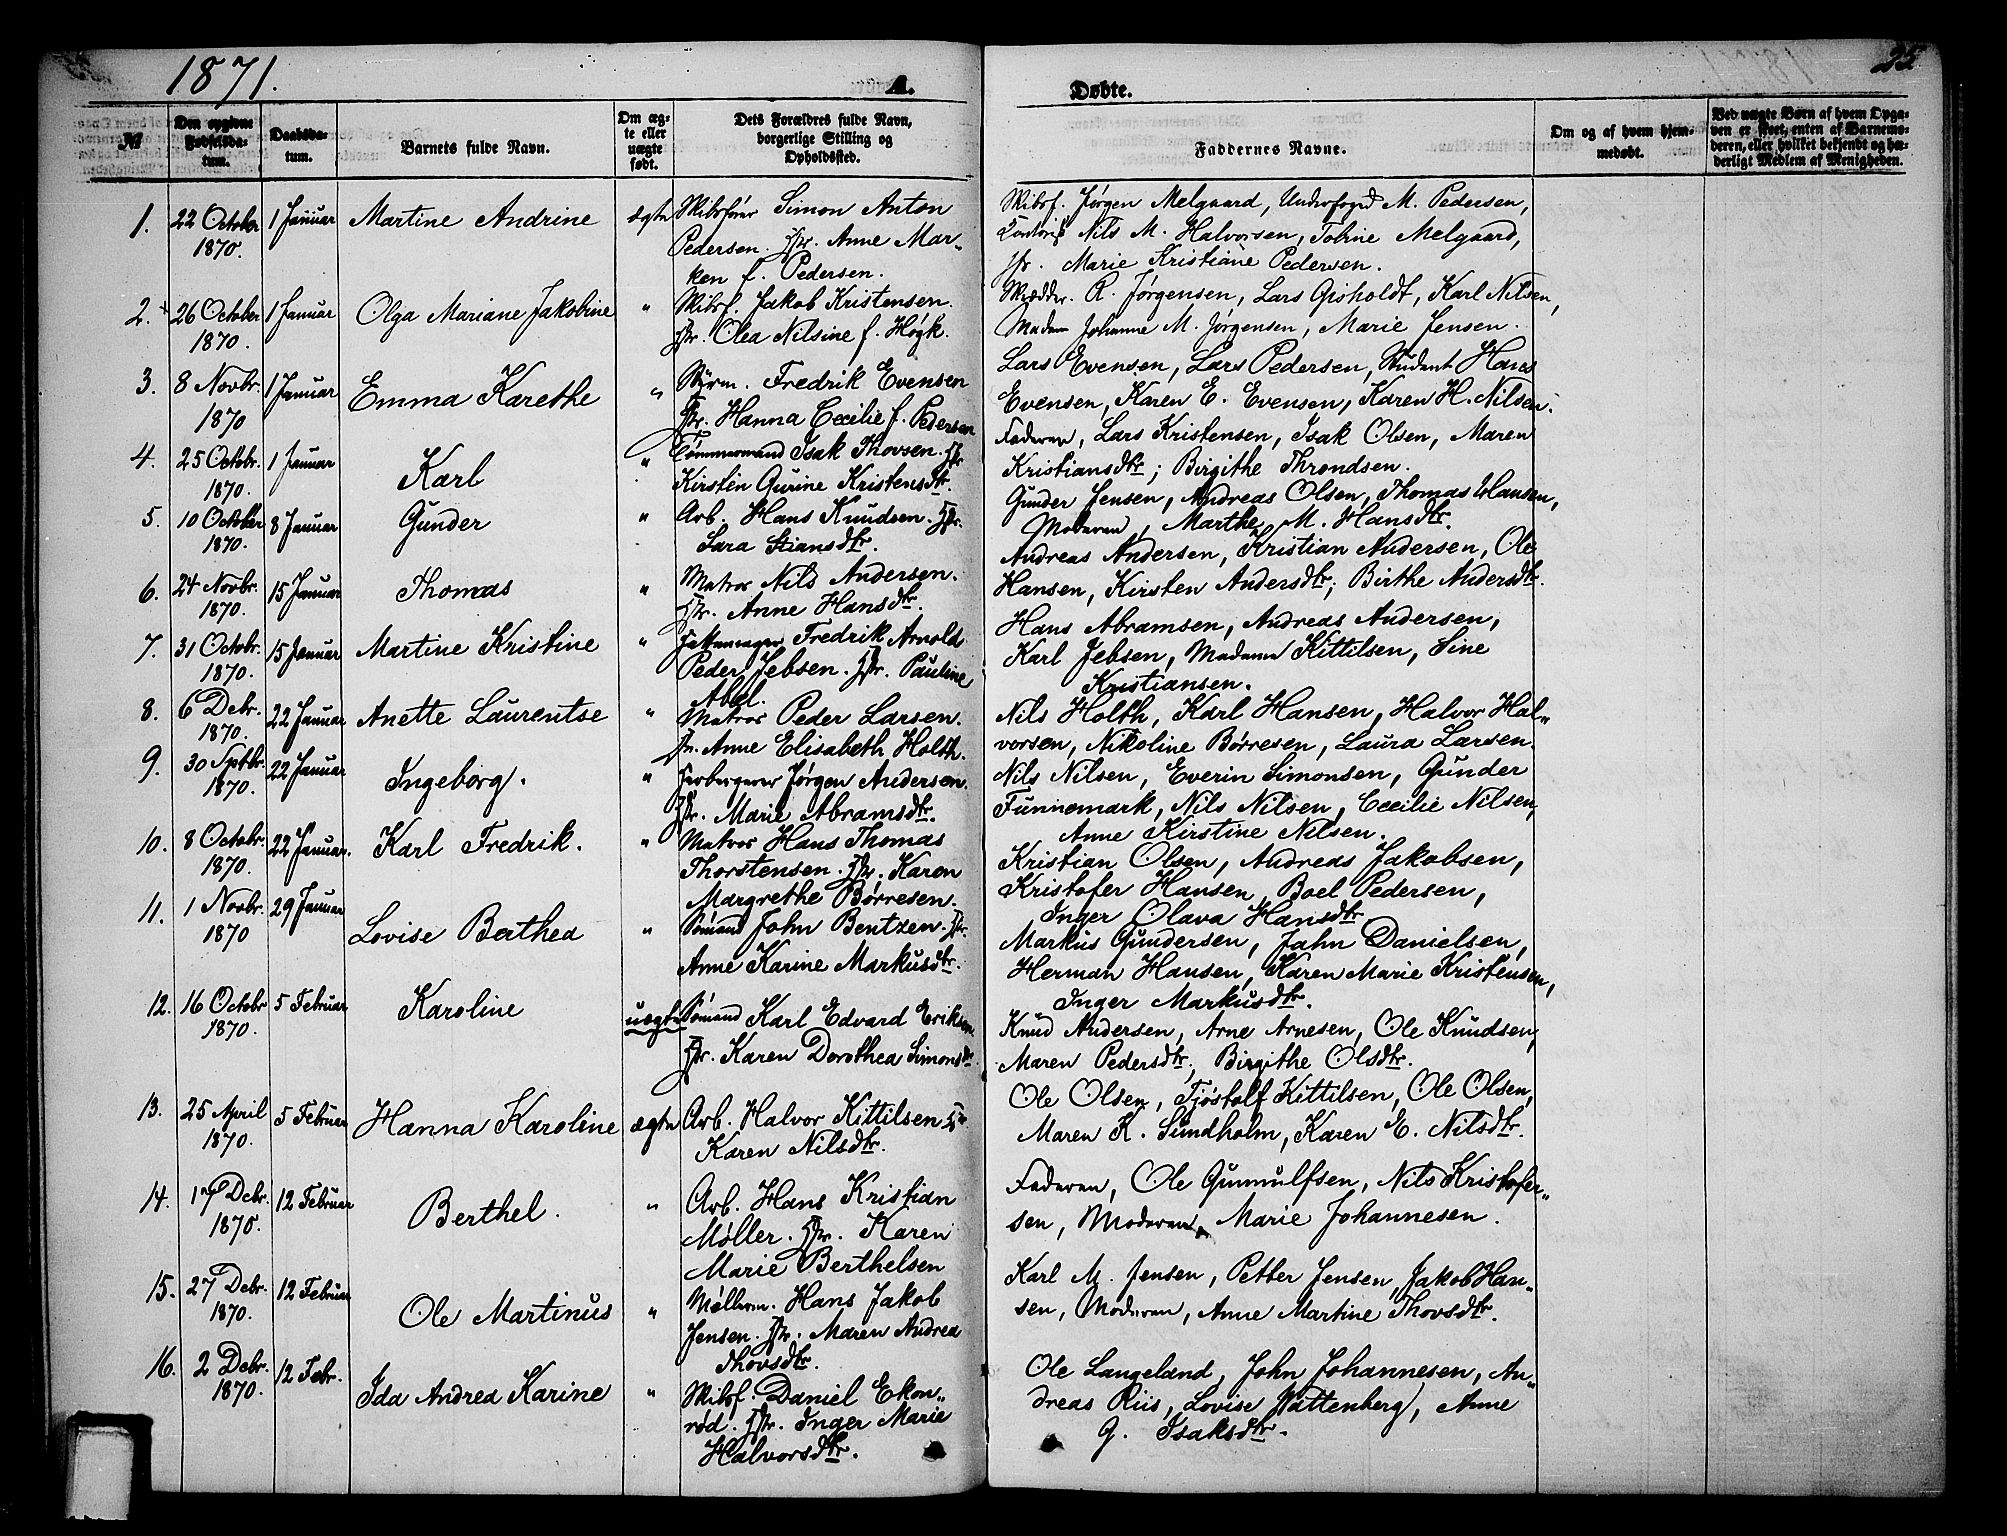 1871.
A.
Døbte.
25
№
Den opgivne Fødselsdatum.
Daabsdatum.
Barnets fulde Navn.
Om ægte eller uægte født.
Dets Forældres fulde Navn, borgerlige Stilling og Opholdssted.
Faddernes Navne.
Om og af hvem hjemmedøbt.
Ved uægte Børn af hvem Opgaven er skeet, enten af Barnemoderen, eller hvilket bekjendt og hæderligt Medlem af Menigheden.
1. 22 October 1870. 1 Januar Martine Andrine ægte Skibsfører Simon Anton
Pedersen. Hstr. Anne Mar-
ken f. Pedersen.
Skibsf. Jørgen Melgaard, Underfoged M. Pedersen,
Nils M. Halvorsen, Tobine Melgaard,
Marie Kristiane Pedersen.
2. 26 October 1870. 1 Januar Olga Mariane Jakobine " Skibsf. Jakob Kristensen.
Hstr. Olea Nilsine f. Høgk.
Skrædder. R. Jørgensen, Lars Gisholdt, Karl Nilsen,
Madam Johanne M. Jørgensen, Marie Jensen.
3. 8 Novbr. 1870 1 Januar Emma Karethe " Styrm. Fredrik Evensen
Hstr. Hanna Cecilie f. Pedersen
Lars Evensen, Lars Pedersen, Student Hans
Evensen, Karen E. Evensen, Karen H. Nilsen.
4. 25 Octobr. 1870. 1 Januar Karl " Tømmermand Isak Thovsen. Hstr.
Kirsten Gurine Kristensdtr.
Faderen, Lars Kristensen, Isak Olsen, Maren
Kristiansdtr; Birgithe Throndsen.
5. 10 October 1870. 8 Januar Gunder " Arb. Hans Knudsen. Hstr.
Sara Stiansdtr.
Gunder Jensen, Andreas Olsen, Thomas Hansen,
Moderen, Marthe M. Hansdtr.
6. 24 Novbr. 1870. 15 Januar Thomas " Matros Nils Andersen.
Hstr. Anne Hansdtr.
Andreas Andersen, Kristian Andersen, Ole
Hansen, Kirsten Andersdtr; Birthe Andersdtr.
7. 31 Octobr. 1870. 15 Januar Martine Kristine " Fredrik Arnold
Peder Jebsen. Hstr. Pauline
Abel.
Hans Abramsen, Andreas Andersen,
Karl Jebsen, Madam Kittilsen, Sine
Kristiansen.
8. 6 Debr. 1870. 22 Januar Anette Laurentse " Matros Peder Larsen.
Hstr. Anne Elisabeth Holth.
Nils Holth, Karl Hansen, Halvor Hal-
vorsen, Nikoline Børresen, Laura Larsen.
9. 30 Sptbr. 1870. 22 Januar Ingeborg. " Herbergerer Jørgen Andersen.
Hstr. Marie Abramsdtr.
Nils Nilsen, Everin Simonsen, Gunder
Funnemark, Nils Nilsen, Cecilie Nilsen,
Anne Kirstine Nilsen.
10. 8 Octobr. 1870. 22 Januar. Karl Fredrik. " Matros Hans Thomas
Thorstensen. Hstr. Karen
Margrethe Børresen.
Kristian Olsen, Andreas Jakobsen,
Kristofer Hansen, Boel Pedersen,
Inger Olava Hansdtr
11. 1 Novbr. 1870 29 Januar Lovise Berthea " Sømand John Bentzen. Hstr.
Anne Karine Markusdtr.
Markus Gundersen, Jahn Danielsen,
Herman Hansen, Karen Marie Kristensen,
Inger Markusdtr.
12. 16 Octobr 1870. 5 Februar Karoline uægte Sømand Karl Edvard Eriksen.
Hstr. Karen Dorothea Simonsdtr.
Knud Andersen, Arne Arnesen, Ole Knudsen,
Maren Pedersdtr; Birgithe Olsdtr.
13. 25 April 1870. 5 Februar Hanna Karoline ægte Arb. Halvor Kittilsen
Karen Nilsdtr.
Ole Olsen, Tjøstolf Kittilsen, Ole Olsen,
Maren K. Sundholm, Karen E. Nilsdtr.
14. 17 Debr. 1870. 12 Februar Berthel. " Arb. Hans Kristian
Møller. Hstr. Karen
Marie Berthelsen
Faderen, Ole Gunnulfsen, Nils Kristofer-
sen, Moderen, Marie Johannesen.
15. 27 Debr. 1870. 12 Februar Ole Martinus " Møllerm. Hans Jakob
Jensen. Hstr. Maren Andrea
Thovsdtr.
Karl M. Jensen, Petter Jensen, Jakob Han-
sen, Moderen, Anne Martine Thovsdtr.
16. 2 Debr. 1870. 12 Febr. Ida Andrea Karine " Skibsf. Daniel Ekon-
rød. Hstr. Inger Marie
Halvorsdtr.
Ole Langeland, John Johannesen, An-
dreas Riis, Lovise Wattenberg, Anne
G. Isaksdtr.